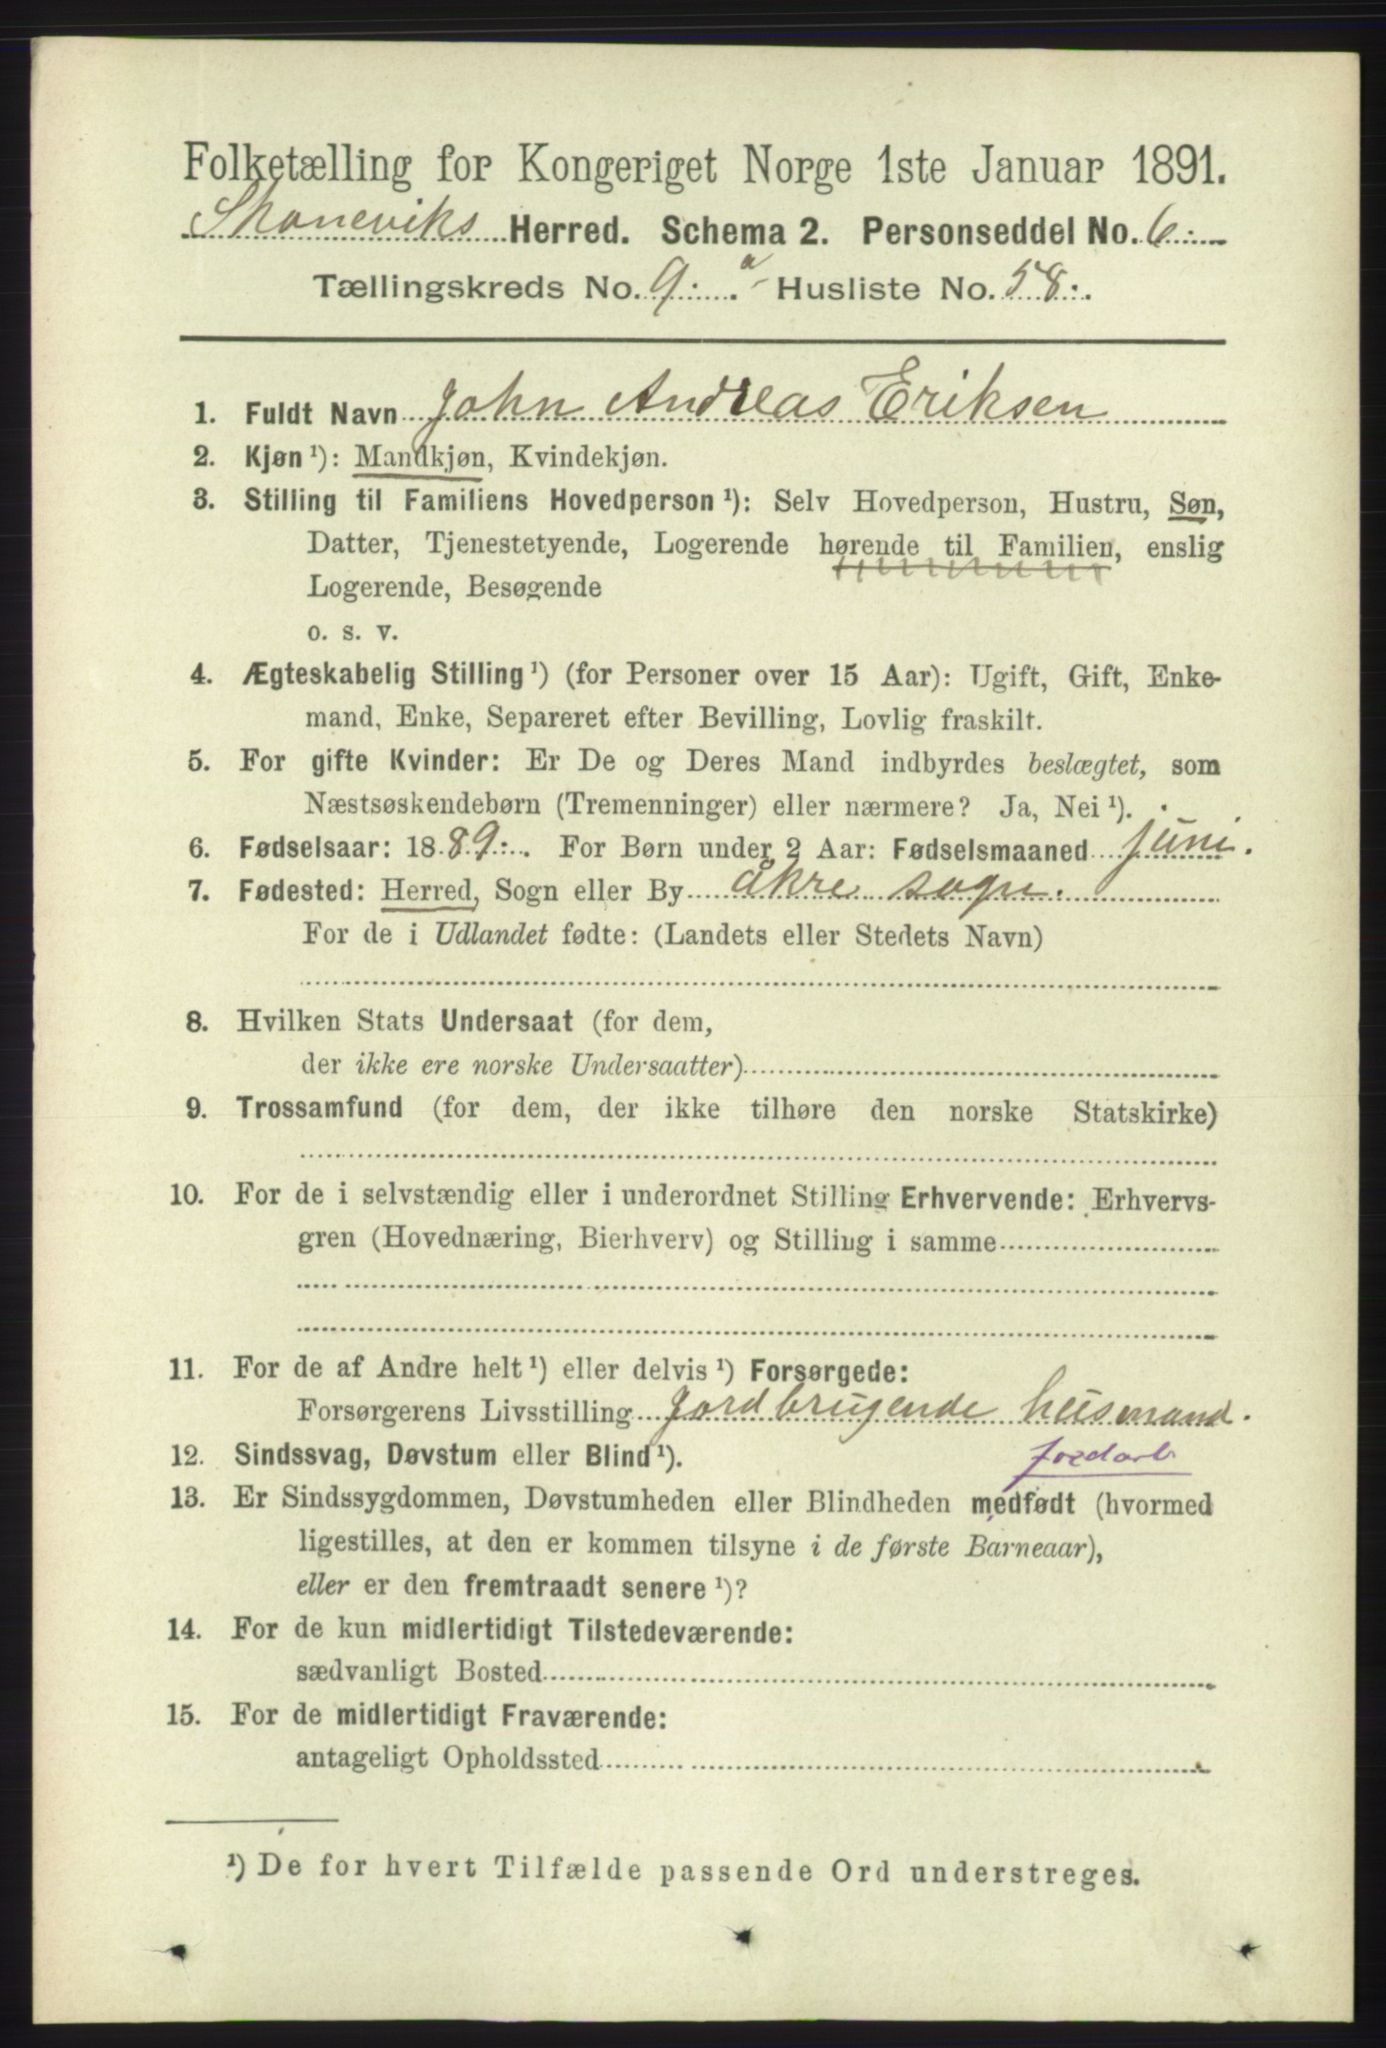 Folketælling for Kongeriget Norge 1ste Januar 1891.
Skoneviks Herred. Schema 2. Personseddel No. 6.
Tællingskreds No. 9. a Husliste No. 58.
1. Fuldt Navn John Andreas Eriksen
2. Kjøn ¹): Mandkjøn, Kvindekjøn.
3. Stilling til Familiens Hovedperson ¹): Selv Hovedperson, Hustru, Søn,
Datter, Tjenestetyende, Logerende hørende til Familien, enslig
Logerende, Besøgende
o. s. v.
4. Ægteskabelig Stilling ¹) (for Personer over 15 Aar): Ugift, Gift, Enke-
mand, Enke, Separeret efter Bevilling, Lovlig fraskilt.
5. For gifte Kvinder: Er De og Deres Mand indbyrdes beslægtet, som
Næstsøskendebørn (Tremenninger) eller nærmere? Ja, Nei ¹).
6. Fødselsaar: 1889. For Børn under 2 Aar: Fødselsmaaned juni.
7. Fødested: Herred, Sogn eller By åkre sogn.
For de i Udlandet fødte: (Landets eller Stedets Navn)
8. Hvilken Stats Undersaat (for dem,
der ikke ere norske Undersaatter)
9. Trossamfund (for dem, der ikke tilhøre den norske Statskirke)
10. For de i selvstændig eller i underordnet Stilling Erhvervende: Erhvervs-
gren (Hovednæring, Bierhverv) og Stilling i samme
11. For de af Andre helt ¹) eller delvis ¹) Forsørgede:
Forsørgerens Livsstilling Jordbrugende husmand.
12. Sindssvag, Døvstum eller Blind ¹). Jordarb
13. Er Sindssygdommen, Døvstumheden eller Blindheden medfødt (hvormed
ligestilles, at den er kommen tilsyne i de første Barneaar),
eller er den fremtraadt senere ¹)?
14. For de kun midlertidigt Tilstedeværende:
sædvanligt Bosted
15. For de midlertidigt Fraværende:
antageligt Opholdssted
¹) De for hvert Tilfælde passende Ord understreges.